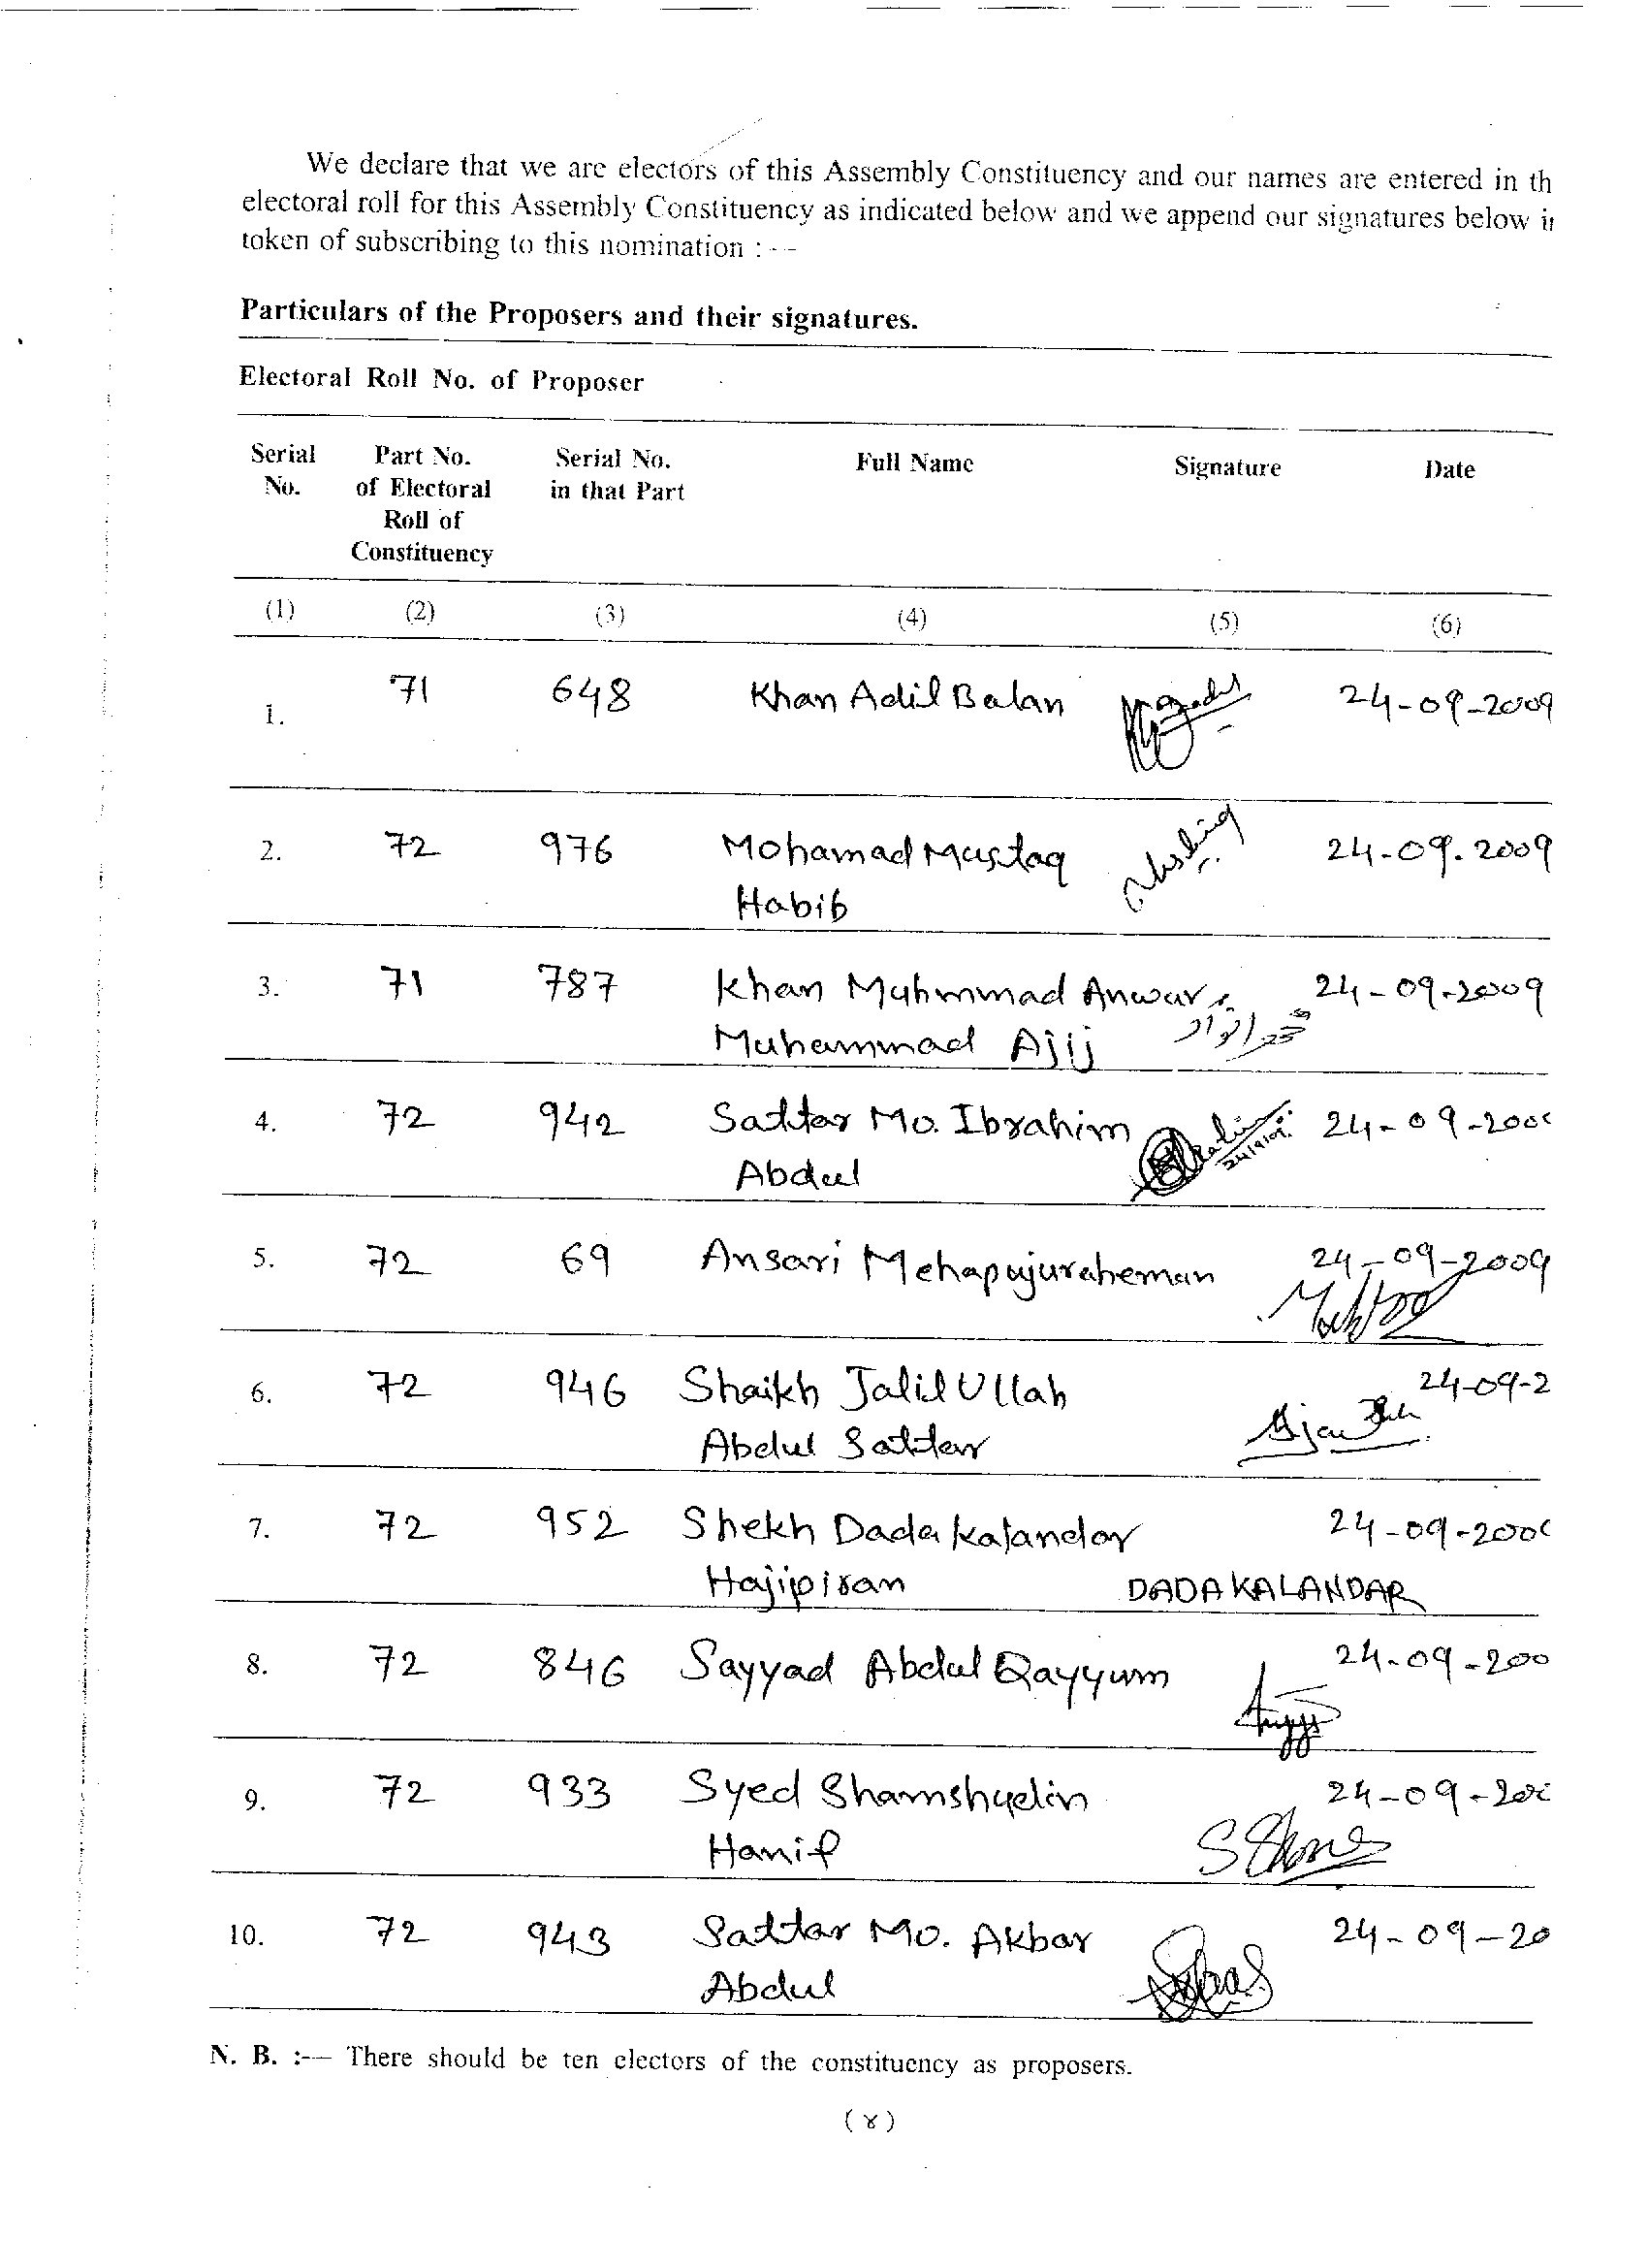 We declare that we are electors of this Assembly Constituency and our names are entered in th
electoral roll for this Assembly Constituency as indicated below and we append our signatures below in
token of subscribing to this nomination : --
Particulars of the Proposers and their signatures.
Electoral Roll No. of Proposer
Serial No. Part No. of Electoral Roll of Constituency Serial No. in that Part Full Name Signature Date
(1) (2) (3) (4) (5) (6)
1. 71 648 Khan Adil Balan 24-09-2009
2. 72 976 Mohamad Mustaq 24-09.2009
Habib
3. 71 787 Khan Muhmmad Anwar 24-09-2009
Muhammad Ajij محمد انوار
4. 72 942 Sattar Mo. Ibrahim 24-09-200
24/9/09.
Abdul
5. 72 69 Ansari Mehapujuraheman 24-09-2009
6. 72 946 Shaikh Jalil Ullah 24-09-2
Abdul Sattar
7. 72 952 Shekh Dada Kalandar 24-09-200
Hajipiran DADA KALANDAR
8. 72 846 Sayyad Abdul Qayyum 24-09-200
9. 72 933 Syed Shamshudin 24-09-200
Hanif
10. 72 943 Sattar Mo. Akbar 24-09-20
Abdul
N. B. :-- There should be ten electors of the constituency as proposers.
(४)